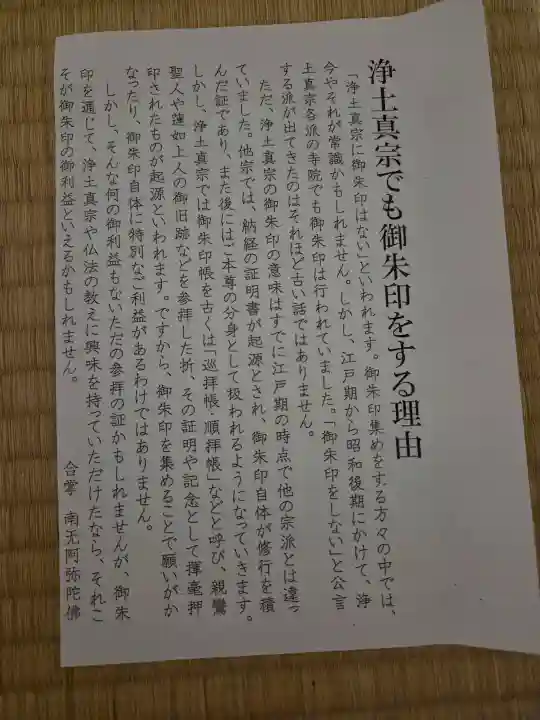 浄土真宗でも御朱印をする理由
「浄土真宗に御朱印はない」といわれます。御朱印集めをする方々の中では、
今やそれが常識かもしれません。しかし、江戸期から昭和後期にかけて、浄
土真宗各派の寺院でも御朱印は行われていました。「御朱印をしない」と公言
する派が出てきたのはそれほど古い話ではありません。
ただ、浄土真宗の御朱印の意味はすでに江戸期の時点で他の宗派とは違っ
ていました。他宗では、納経の証明書が起源とされ、御朱印自体が修行を積
んだ証であり、また後にはご本尊の分身として扱われるようになっていきます。
しかし、浄土真宗では御朱印帳を古くは「巡拝帳・順拝帳」などと呼び、親鸞
聖人や蓮如上人の御旧跡などを参拝した折、その証明や記念として揮毫押
印されたものが起源といわれます。ですから、御朱印を集めることで願いがか
なったり、御朱印自体に特別なご利益があるわけではありません。
しかし、そんな何の御利益もないただの参拝の証かもしれませんが、御朱
印を通じて、浄土真宗や仏法の教えに興味を持っていただけたなら、それこ
そが御朱印の御利益といえるかもしれません。
合掌 南无阿弥陀佛